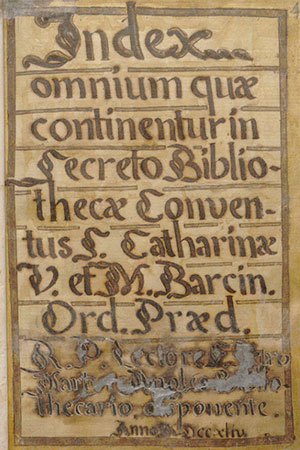 Index
omnium quæ
continentur in
Secreto Biblio-
thecæ Conven-
tus S. Catharinæ
V. et M. Barcin.
Ord. Præd.
R. P. Lectore
thecario. Exponente.
Anno